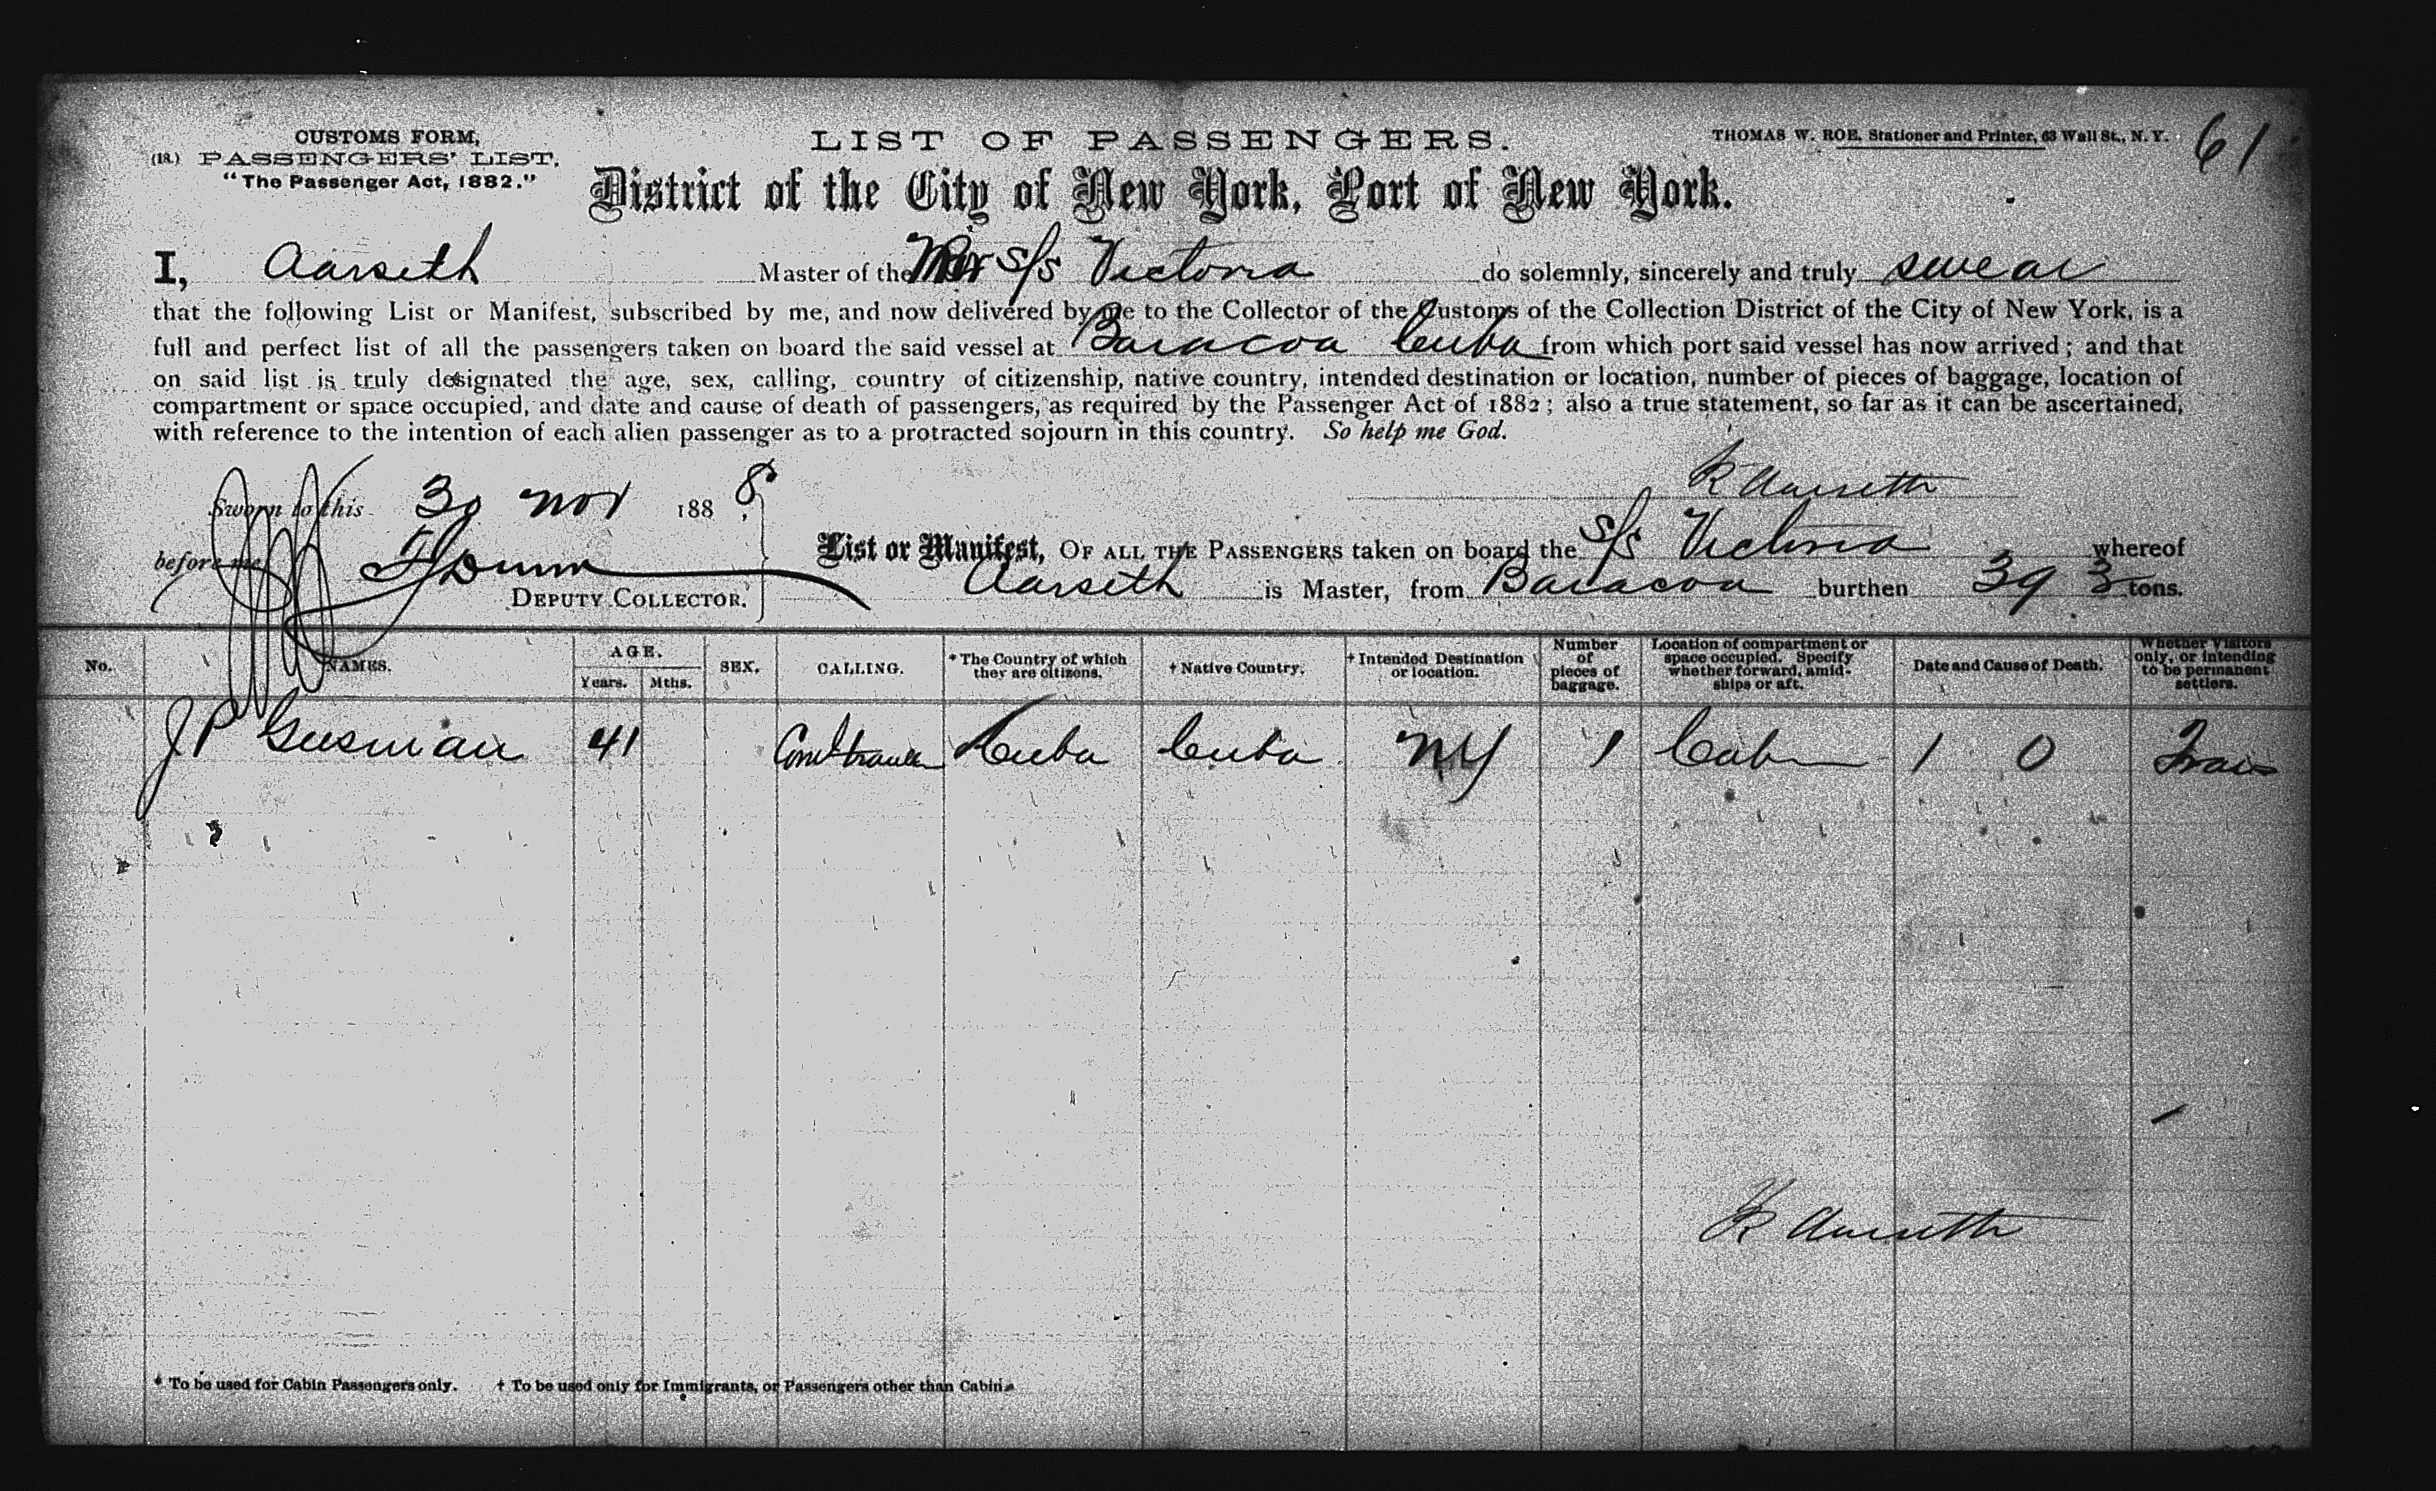 CUSTOMS FORM,
(18.) PASSENGERS' LIST,
"The Passenger Act, 1882."
LIST OF PASSENGERS.
THOMAS W. ROE, Stationer and Printer, 63 Wall St., N. Y.
61
District of the City of New York, Port of New York.
I, Aarseth Master of the S/S Victoria do solemnly, sincerely and truly swear
that the following List or Manifest, subscribed by me, and now delivered by me to the Collector of the Customs of the Collection District of the City of New York, is a
full and perfect list of all the passengers taken on board the said vessel at Baracoa Cuba from which port said vessel has now arrived; and that
on said list is truly designated the age, sex, calling, country of citizenship, native country, intended destination or location, number of pieces of baggage, location of
compartment or space occupied, and date and cause of death of passengers, as required by the Passenger Act of 1882; also a true statement, so far as it can be ascertained,
with reference to the intention of each alien passenger as to a protracted sojourn in this country. So help me God.
K Aarseth
Sworn to this 30 Nov 1888,
before me
DEPUTY COLLECTOR.
List or Manifest, OF ALL THE PASSENGERS taken on board the S/S Victoria whereof
Aarseth is Master, from Baracoa burthen 393 tons.
No. NAMES. AGE. Years. Mths. SEX. CALLING. * The Country of which they are citizens. † Native Country. † Intended Destination or location. Number of pieces of baggage. Location of compartment or space occupied. Specify whether forward, amidships or aft. Date and Cause of Death. Whether Visitors only, or intending to be permanent settlers.
J P Gusman 41 Cuba Cuba NY 1 Cabin 1 0
K Aarseth
* To be used for Cabin Passengers only. † To be used only for Immigrants, or Passengers other than Cabin.